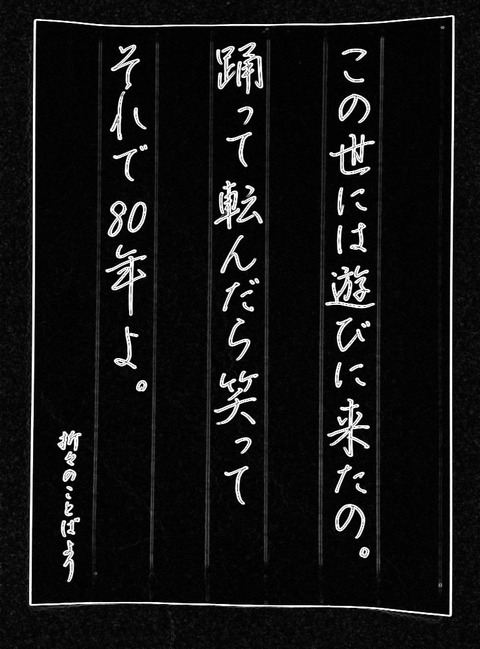 この世には遊びに来たの。
踊って転んだら笑って
それで80年よ。
折々のことばより